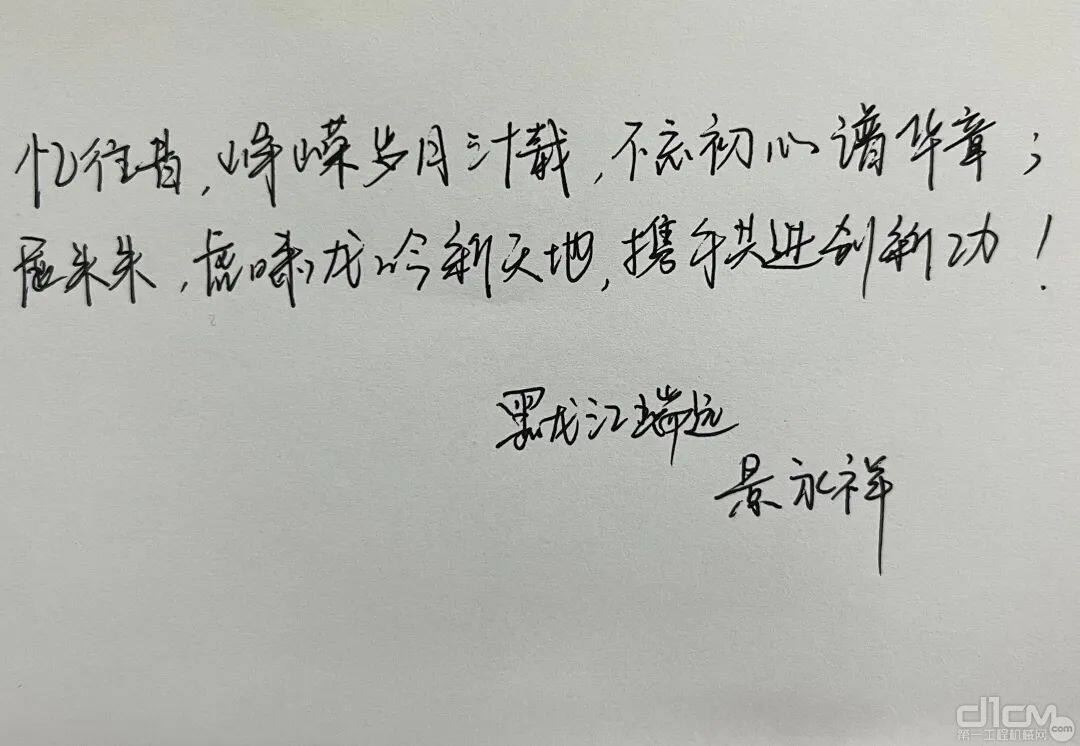 忆往昔，峥嵘岁月三十载，不忘初心谱华章；
展未来，虎啸龙吟新天地，携手共进创新功！
黑龙江瑞远
景永祥
d1cm.com
第一工程机械网